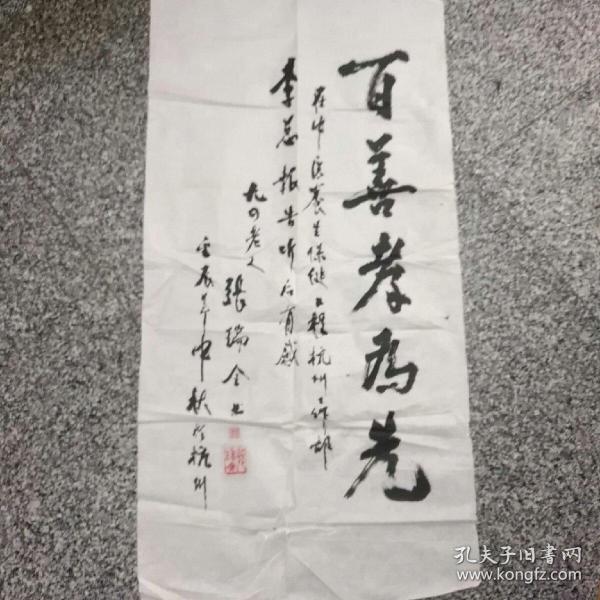 百善孝為先
在中医养生保健工程杭州工作部
李总报告听后有感
九四老人 張瑞全书
壬辰年中秋於杭州
孔夫子旧书网
www.kongfz.com